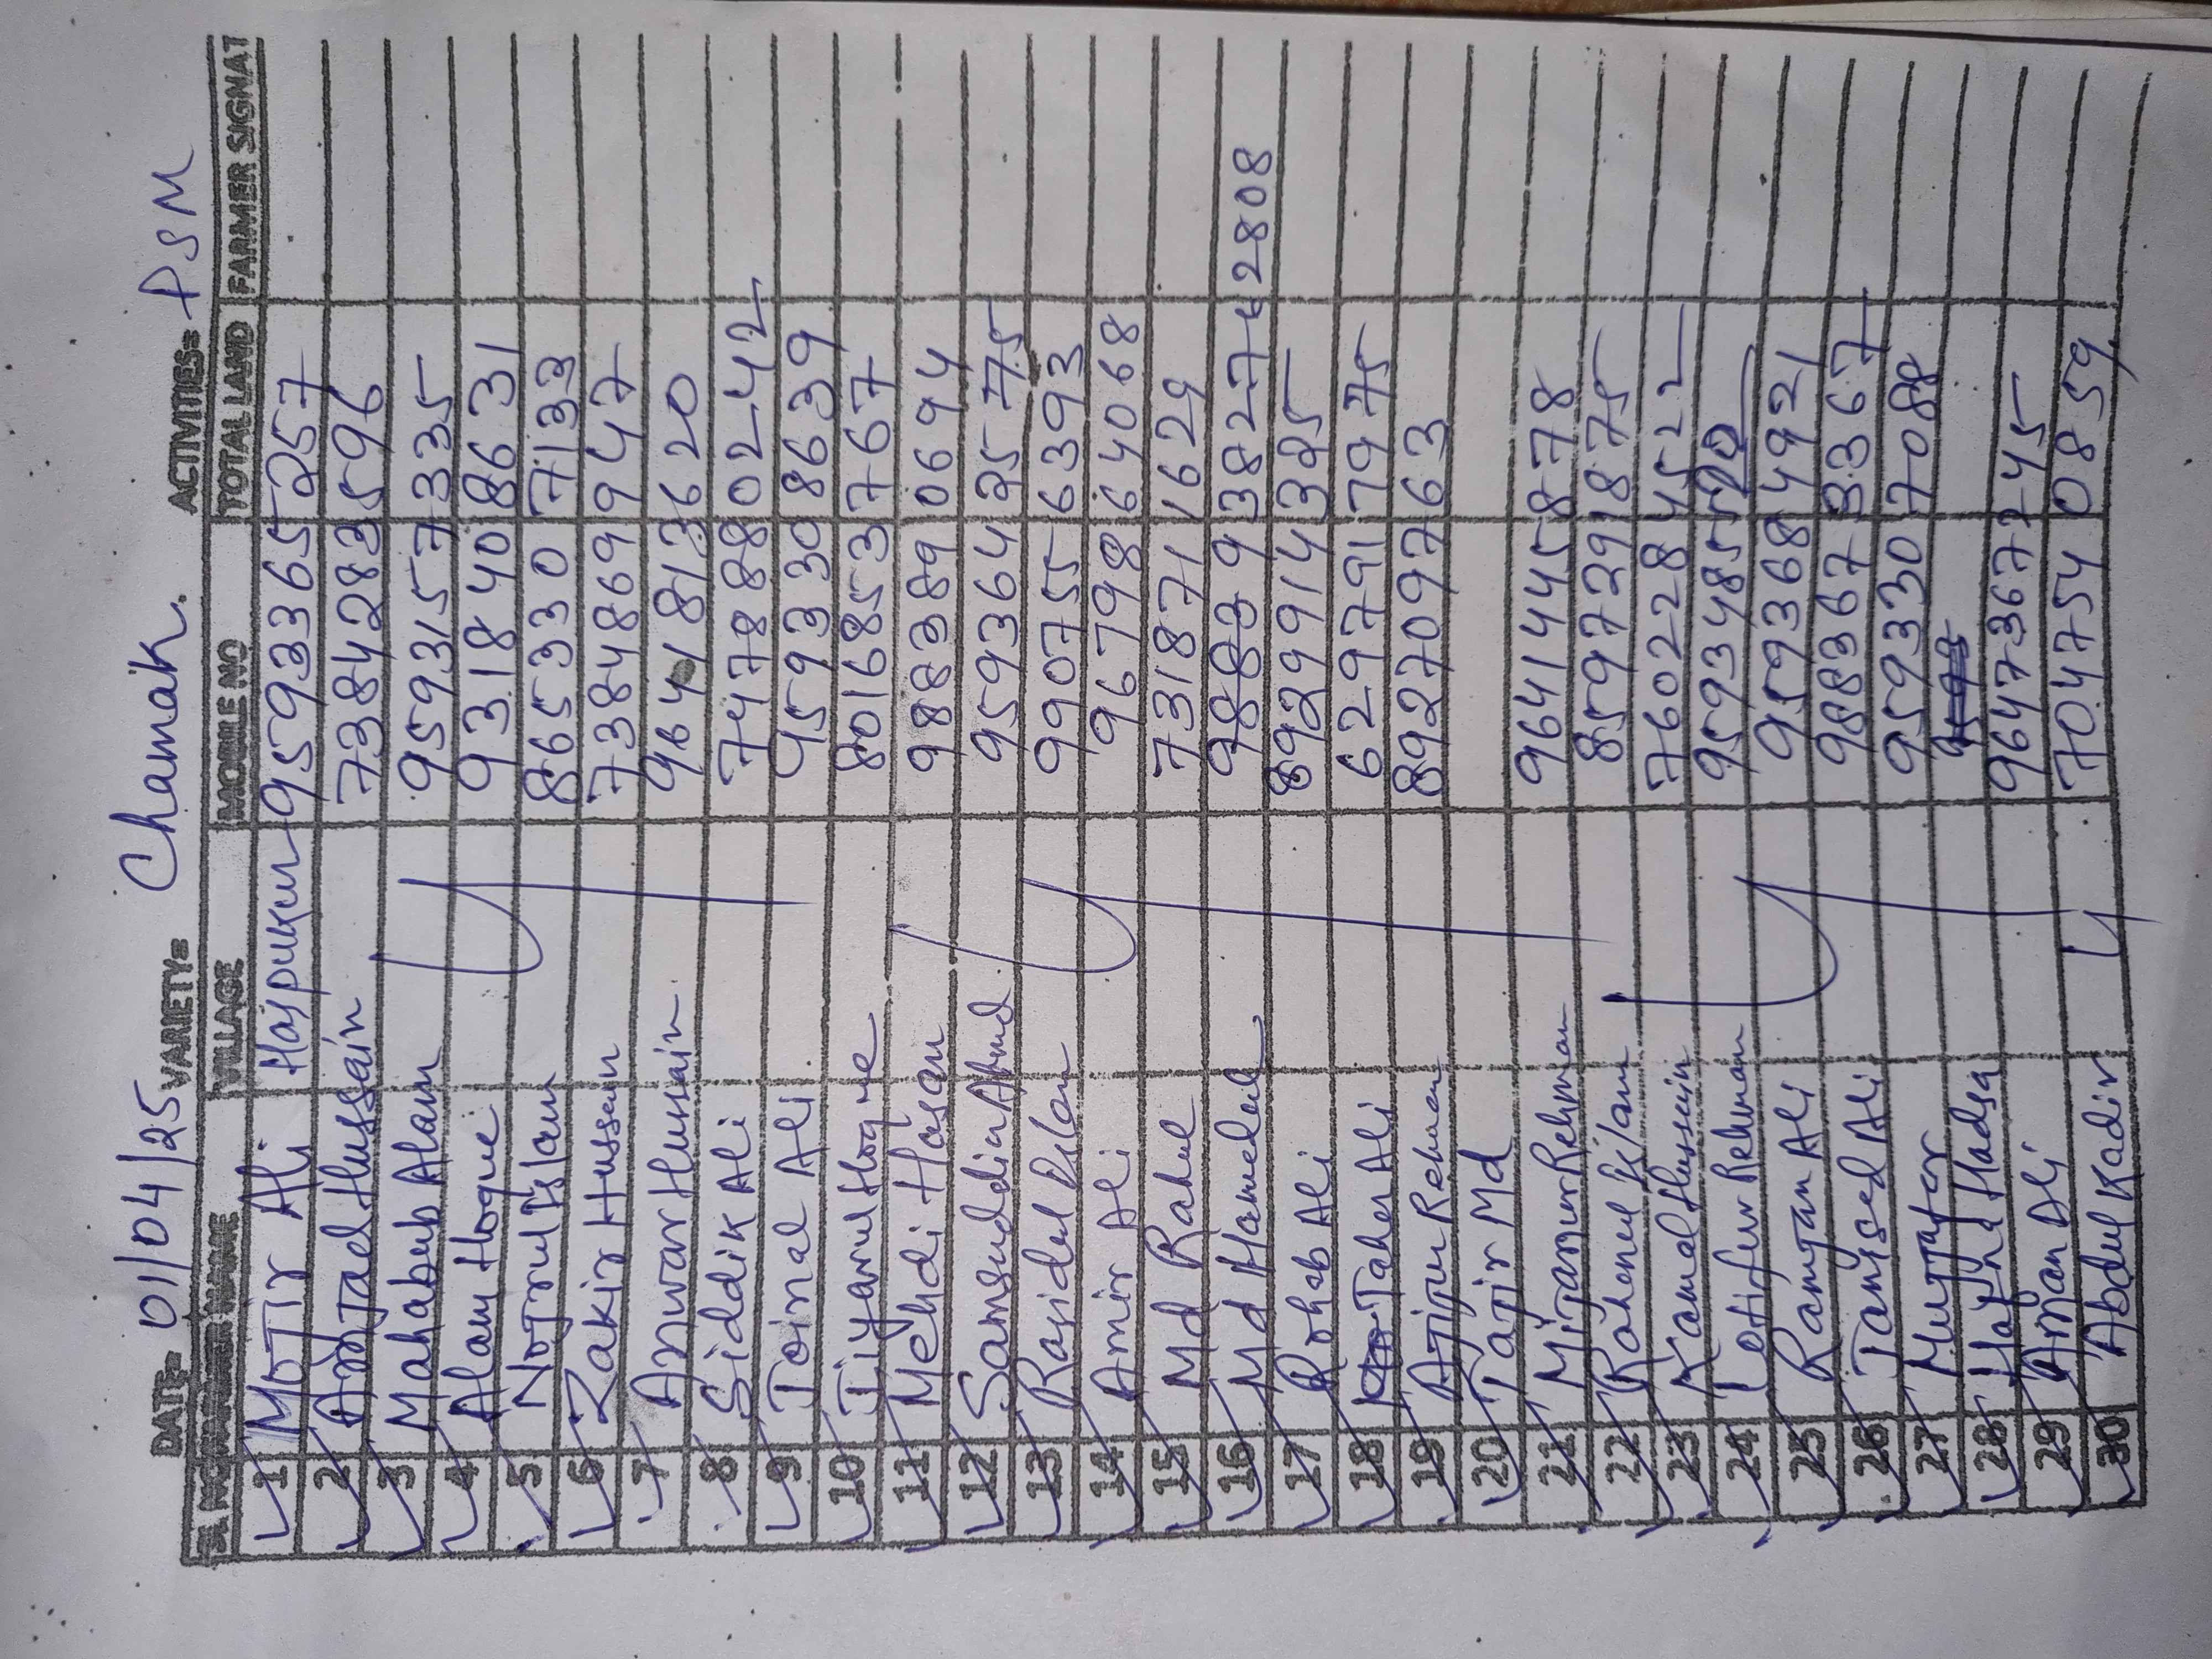 DATE= 01/04/25 VARIETY= Chamak. ACTIVITIES= PSM
SL NO FARMER NAME VILLAGE MOBILE NO TOTAL LAND FARMER SIGNAT
1 Mojir Ali Hajpukur 9593365257
2 Amjad Hussain 7384283596
3 Mahabub Alam 9593157335
4 Alam Hoque 9318408631
5 Nojrul Islam 8653307133
6 Zakir Hussain 7384869947
7 Anwar Hussain. 9641813620
8 Siddik Ali 7478880242
9 Joinal Ali 9593308639
10 Jiyarul Hoque 8016853767
11 Mehdi Hasan 9883890694
12 Samsuddin Ahmed 9593642575
13 Rasidul Islam 9907556393
14 Amir Ali 9679864068
15 Md Rahul 7318711629
16 Md Hamedul 9883 9382742808
17 Rohab Ali 8929914325
18 Taher Ali 6297917975
19 Ajijur Rehman 8927097763
20 Tajir Md
21 Mijanur Rehman 9641445878
22 Rahenul Islam 8597291875
23 Kamal Hussein 7602284522
24 Lotifur Rehman 9593485520
25 Ramjan Ali 9593684921
26 Tamised Ali 9883673367
27 Mujafor 9593307088
28
29 Aman Ali 9647367245
30 Abdul Kadir 7047540859